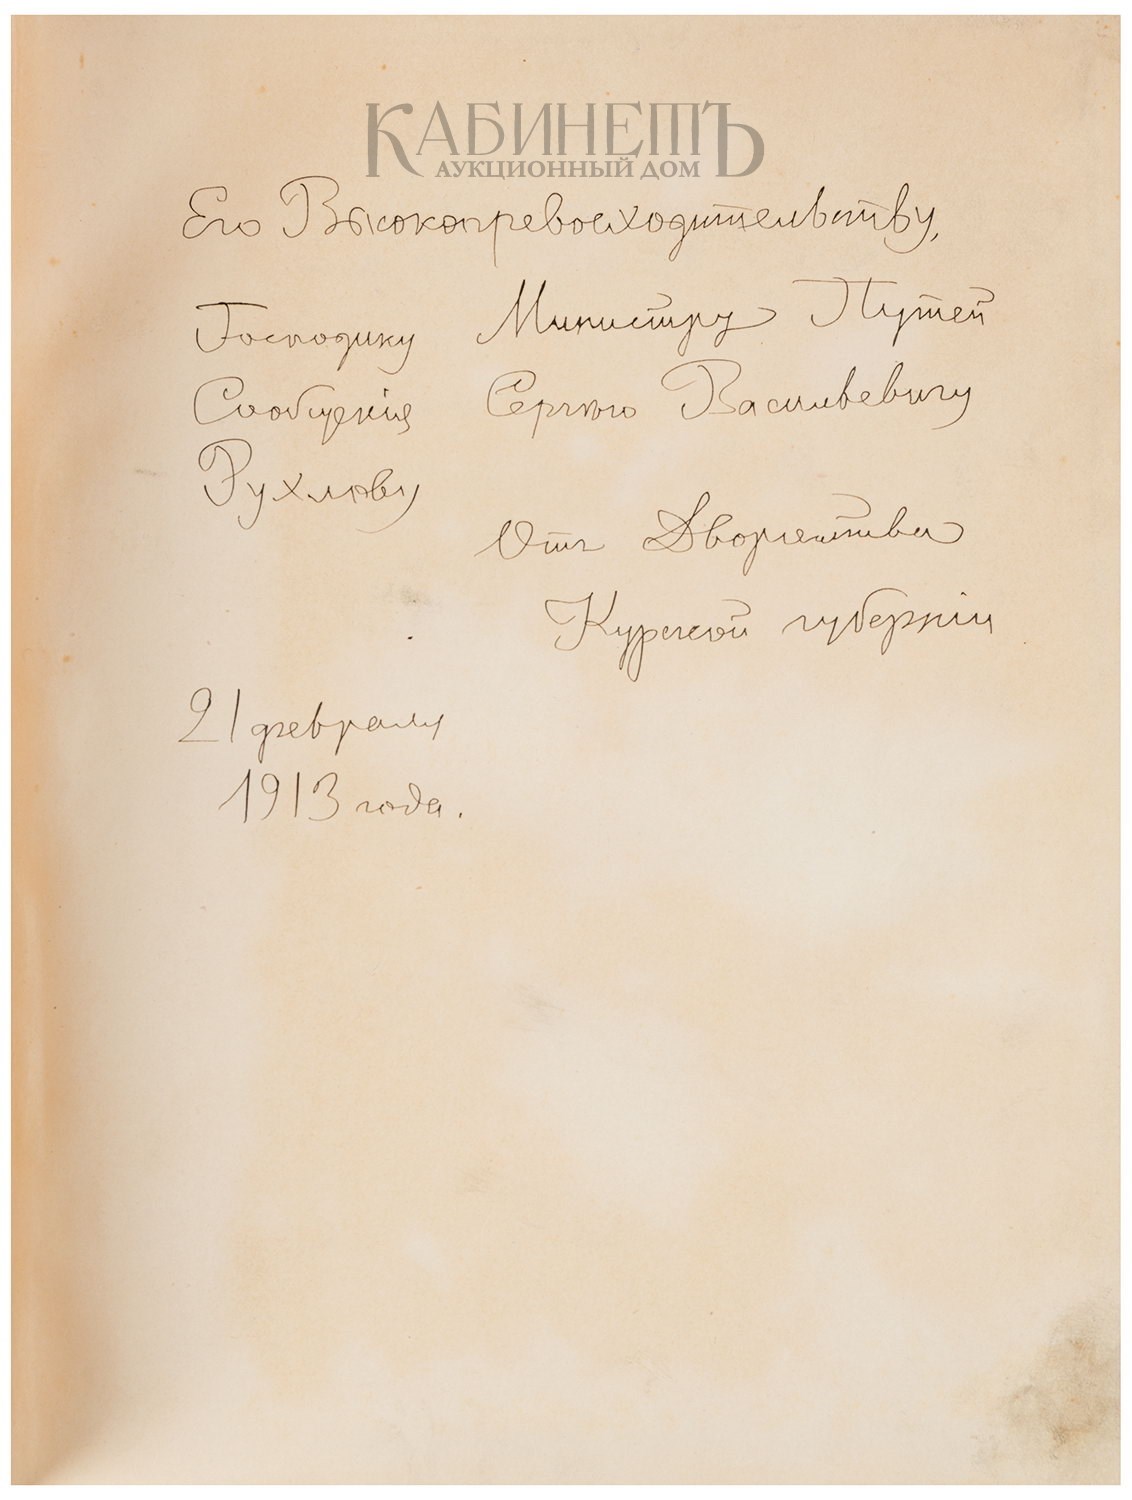 КАБИНЕТЪ
АУКЦИОННЫЙ ДОМ
Его Высокопревосходительству,
Господину Министру Путей
Сообщенія Сергѣю Васильевичу
Рухлову
Отъ Дворянства
Курской губерніи
21 февраля
1913 года.